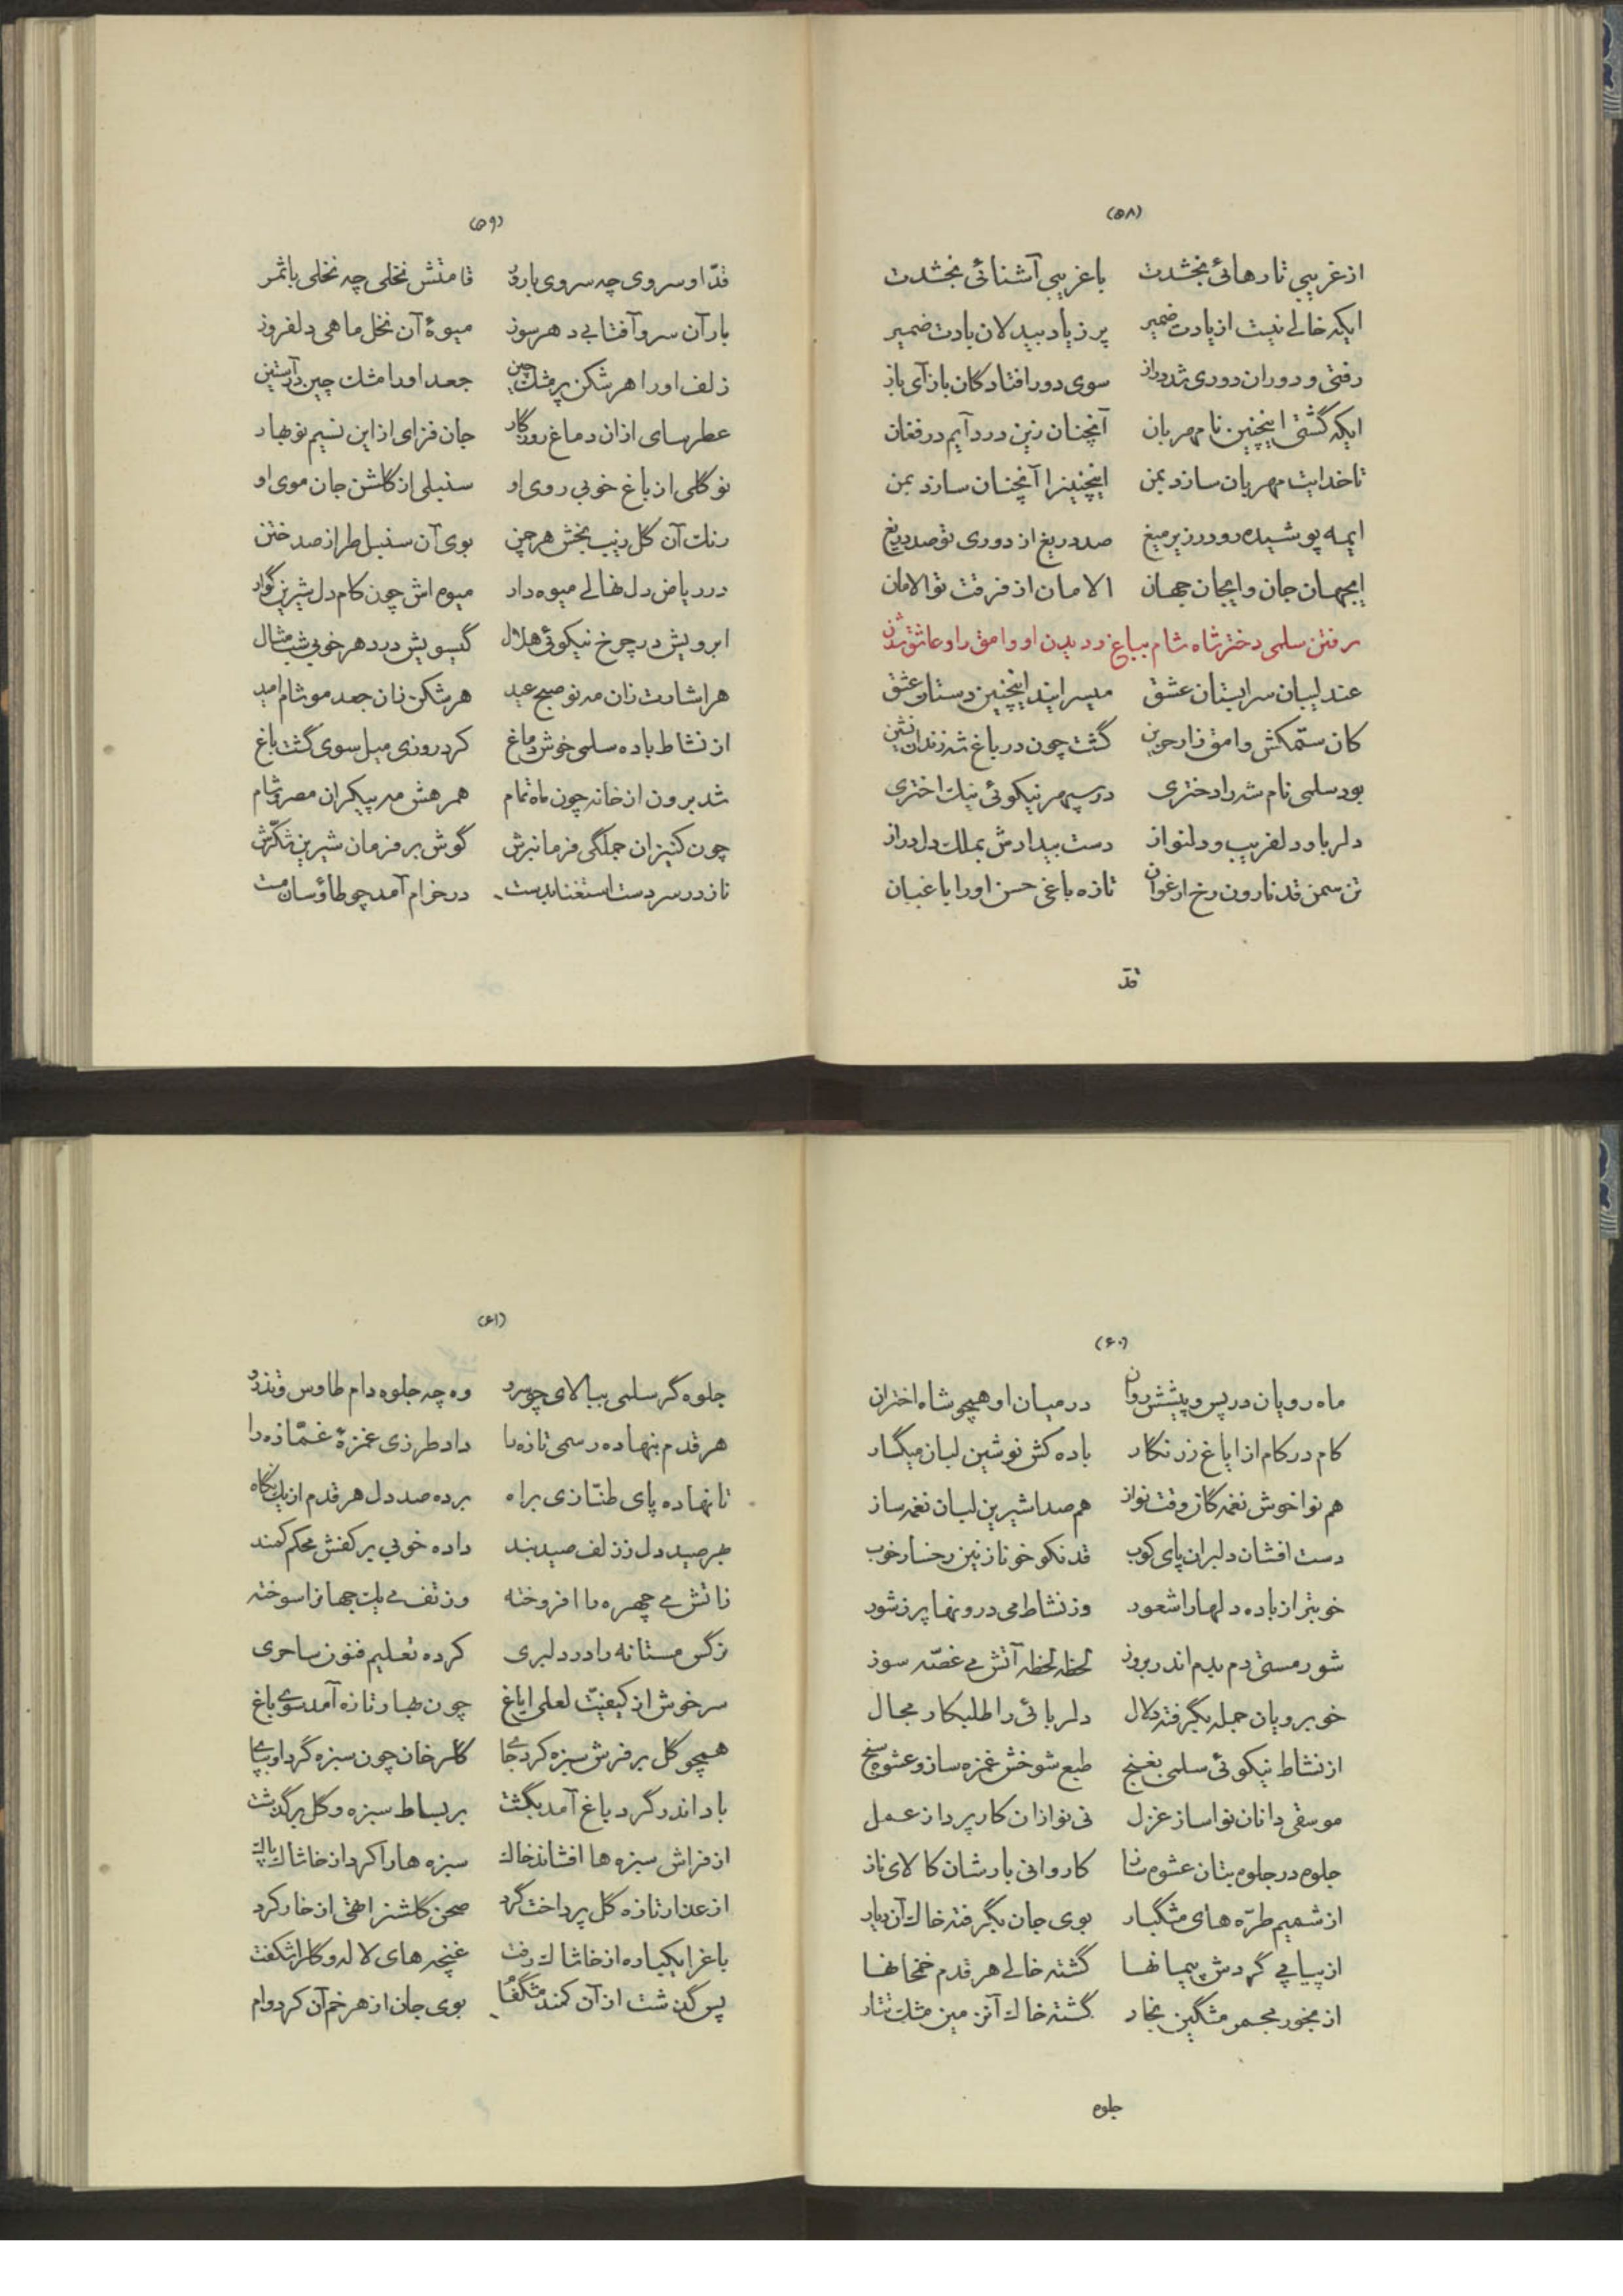 (۵۸)
از غریبی تا رهائی بخشدت باغریبی آشنائی بخشدت
ایکه خالے نیست از یادت ضمیر پر ز یاد بیدلان بادت ضمیر
رفتی و دوران دوری شد دراز سوی دور افتادگان باز آی باز
ایکه گشتی اینچنین نامهربان آنچنان زین درد آیم در فغان
تا خدایت مهربان سازد بمن اینچنینرا آنچنان سازد بمن
ایمه پوشیده رو در زیر میغ صد دریغ از دوری تو صد دریغ
ایجهان جان و ایجان جهان الامان از فرقت تو الامان
رفتن سلمی دختر شاه شام بباغ و دیدن او وامق را و عاشق شدن
عندلیبان سرابستان عشق میسرایند اینچنین دستان عشق
کان ستمکش وامق زار حزین گشت چون در باغ شه زندان نشین
بود سلمی نام شه را دختری در سپهر نیکوئی نیک اختری
دلربا و دلفریب و دلنواز دست بیدادش بملک دل دراز
تن سمن قد نارون رخ ارغوان تازه باغی حسن او را باغبان
قدّ
(۵۹)
قدّ او سروی چه سروی بارور قامتش نخلی چه نخلی باثمر
بار آن سرو آفتابے دهر سوز میوهٔ آن نخل ماهی دلفروز
زلف او را هر شکن پر مشک چین جعد او را مشک چین در آستین
عطرسای از ان دماغ روزگار جان فزای از این نسیم نوبهار
نو گلی از باغ خوبی روی او سنبلی از گلشن جان موی او
رنک آن گل زیب بخش هر چمن بوی آن سنبل طراز صد ختن
در ریاض دل نهالے میوه دار میوه اش چون کام دل شیرین گوار
ابرویش در چرخ نیکوئی هلال گیسویش در دهر خوبی شب مثال
هر اشارت زان مه نو صبح عید هر شکن زان جعد مو شام امید
از نشاط باده سلمی خوش دماغ کرد روزی میل سوی گشت باغ
شد برون از خانه چون ماه تمام همرهش مه پیکران مصر و شام
چون کنیزان جملگی فرمانبرش گوش بر فرمان شیرین شکّرش
ناز در سر دست استغنا بدست در خرام آمد چو طاؤسان مست
(۶۰)
ماه رویان در پس و پیشش روان در میان او همچو شاه اختران
کام در کام از ایاغ زرنکار باده کش نوشین لبان میگسار
هم نوا خوش نغمه گاز وقت نواز هم صدا شیرین لبان نغمه ساز
دست افشان دلبران پای کوب قد نکو خو نازنین رخسار خوب
خوبتر از باده دلها را شعور وز نشاط می درونها پر ز شور
شور مستی دم بدم اندر بروز لحظه لحظه آتش مے غصّه سوز
خوبرویان جمله بگرفته دلال دلربائی را طلبکار مجال
از نشاط نیکوئی سلمی بغنج طبع شوخش غمزه ساز و عشوه سنج
موسقی دانان نوا ساز غزل نی نوازان کار پرداز عمل
جلوه در جلوه بتان عشوه ساز کاروانی بارشان کالای ناز
از شمیم طرّه های مشگبار بوی جان بگرفته خاک آن دیار
از پیاپی گردش پیمانها گشته خالے هر قدم خمخانها
از بخور مجمر مشگین بخار گشته خاک آنزمین مشک تتار
جلوه
(۶۱)
جلوه گر سلمی ببالای چو سرو وه چه جلوه دام طاوس و تذرو
هر قدم بنهاده رسمی تازه را داد طرزی غمزهٔ غمّازه را
تا نهاده پای طنّازی براه برده صد دل هر قدم از یک نگاه
بهر صید دل ز زلف صید بند داده خوبی بر کفش محکم کمند
ز اتش مے چهره را افروخته وز تف مے یک جهانرا سوخته
نرگس مستانه را در دلبری کرده تعلیم فنون ساحری
سرخوش از کیفیّت لعلی ایاغ چون بهار تازه آمد سوے باغ
همچو گل بر فرش سبزه کرد جاے گلرخان چون سبزه گرد او بپاے
باد اندر گرد باغ آمد بگشت بر بساط سبزه و گل بر گذشت
از فراش سبزه ها افشاند خاک سبزه ها را کرد از خاشاک پاک
از عذار تازه گل پرداخت گرد صحن گلشنرا تهی از خار کرد
باغرا یکباره از خاشاک رفت غنچه های لاله و گلرا شکفت
پس گذشت از آن کمند مشگفام بوی جان از هر خم آن کرد وام